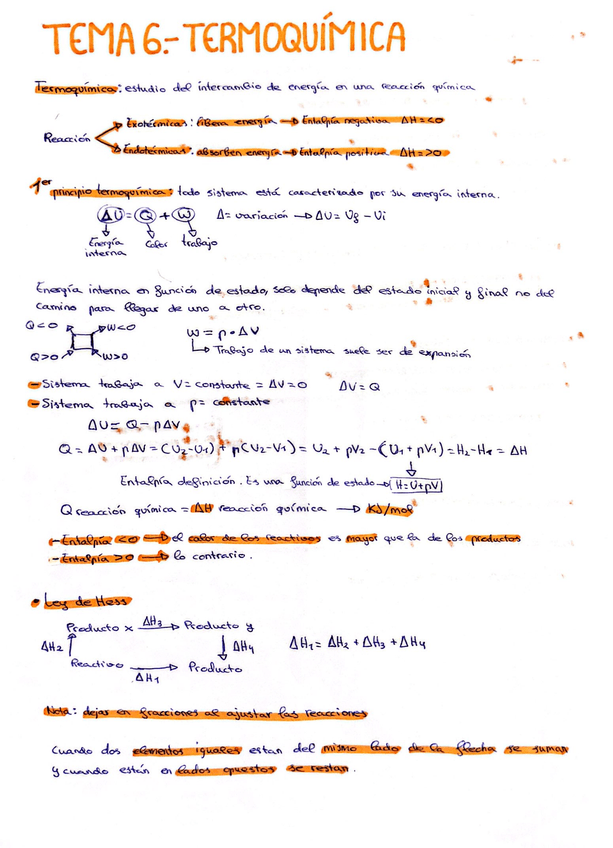 TEMA 6.- TERMOQUÍMICA
Termoquímica: estudio del intercambio de energía en una reacción química
Exotérmicas: libera energía → Entalpía negativa ΔH=<0
Reacción
Endotérmicas: absorben energía → Entalpía positiva ΔH=>0
1er principio termoquímica: todo sistema está caracterizado por su energía interna.
ΔU = Q + W Δ= variación → ΔU = Uf - Ui
Energía interna Calor trabajo
Energía interna en función de estado, solo depende del estado inicial y final no del
camino para llegar de uno a otro.
Q<0 W<0 W = p·ΔV
Q>0 W>0 ↳ Trabajo de un sistema suele ser de expansión
- Sistema trabaja a V= constante = ΔV=0 ΔU=Q
- Sistema trabaja a p= constante
ΔU= Q - pΔV
Q = ΔU + pΔV = (U2-U1) + p(V2-V1) = U2 + pV2 - (U1 + pV1) = H2-H1 = ΔH
Entalpía definición. Es una función de estado → H=U+pV
Q reacción química = ΔH reacción química → KJ/mol
- Entalpía <0 → el calor de los reactivos es mayor que la de los productos
- Entalpía >0 → lo contrario.
• Ley de Hess
Producto x ΔH3 → Producto y
ΔH2 ↑ ↓ ΔH4 ΔH1 = ΔH2 + ΔH3 + ΔH4
Reactivo → Producto
ΔH1
Nota: dejar en fracciones al ajustar las reacciones
Cuando dos elementos iguales estan del mismo lado de la flecha se suman
y cuando están en lados opuestos se restan.